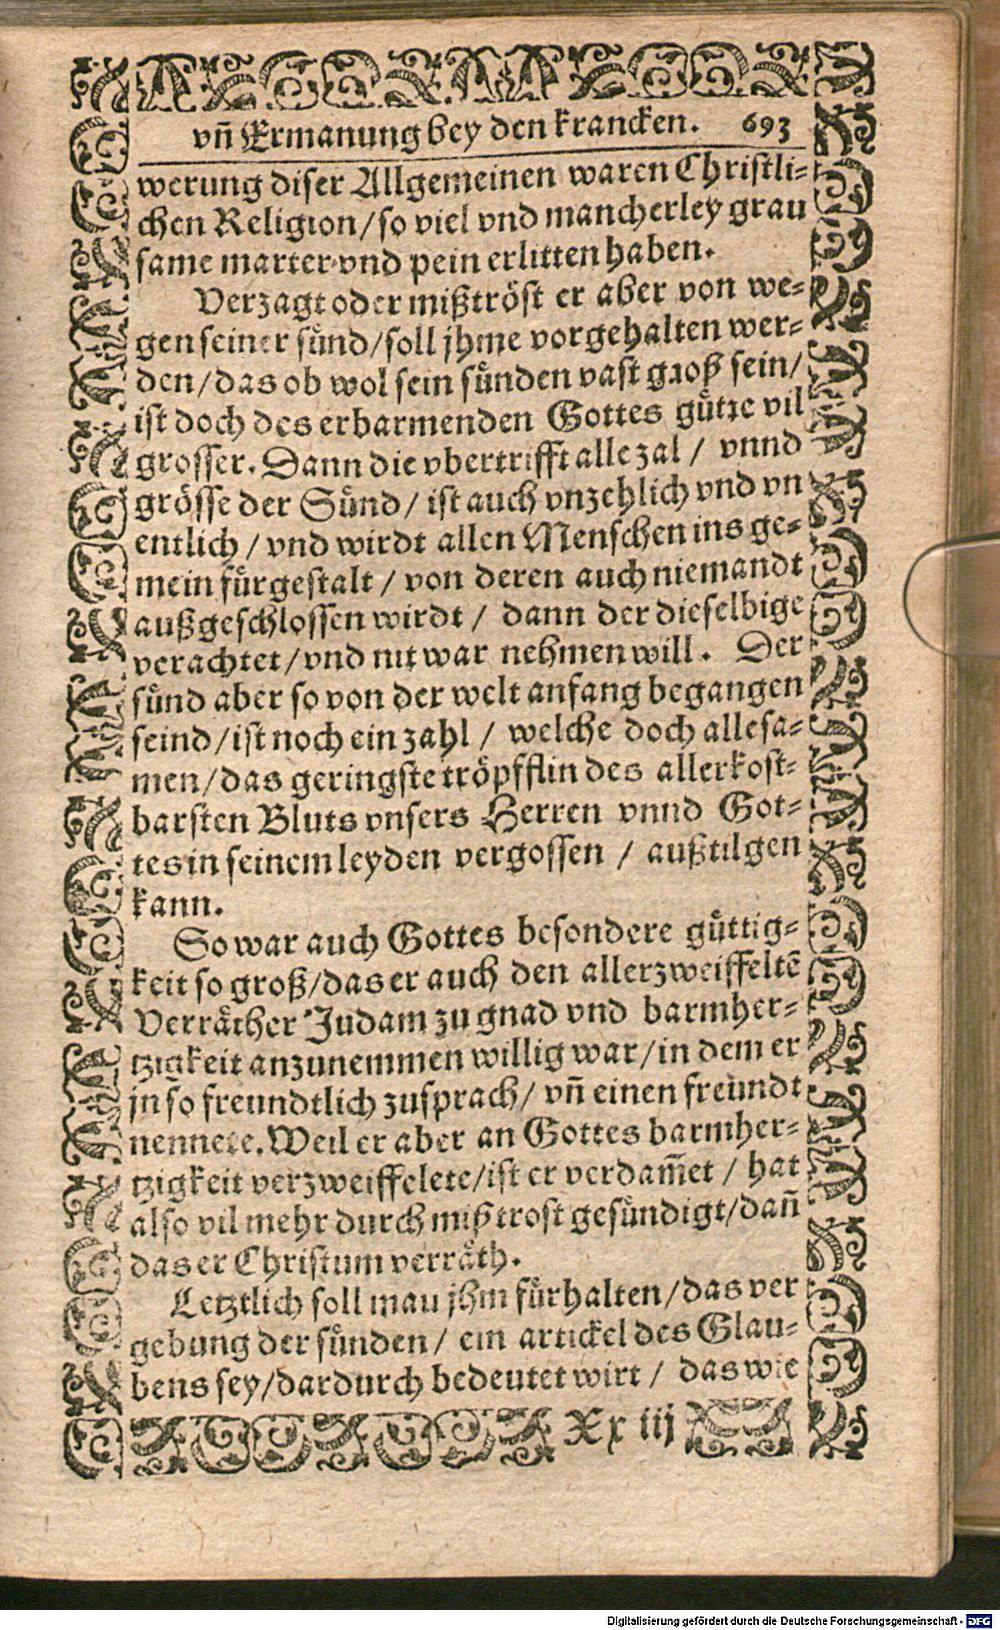 vñ Ermanung bey den krancken. 693
werung diser Allgemeinen waren Christli-
chen Religion/so viel vnd mancherley grau
same marter vnd pein erlitten haben.
Verzagt oder mißtröst er aber von we-
gen seiner sünd/soll jhme vorgehalten wer-
den/das ob wol sein sünden vast groß sein/
ist doch des erbarmenden Gottes gütte vil
grosser. Dann die vbertrifft alle zal / vnnd
grösse der Sünd/ ist auch vnzehlich vnd vn
entlich / vnd wirdt allen Menschen ins ge-
mein fürgestalt / von deren auch niemandt
außgeschlossen wirdt / dann der dieselbige
verachtet/vnd nit war nehmen will. Der
sünd aber so von der welt anfang begangen
seind/ist noch ein zahl / welche doch allesa-
men/das geringste tröpfflin des allerkost-
barsten Bluts vnsers Herren vnnd Got-
tes in seinem leyden vergossen / außtilgen
kann.
So war auch Gottes besondere güttig-
keit so groß/das er auch den allerzweiffeltẽ
Verräther Judam zu gnad vnd barmher-
tzigkeit anzunemmen willig war/in dem er
jn so freundtlich zusprach/ vñ einen freundt
nennete. Weil er aber an Gottes barmher-
tzigkeit verzweiffelete/ist er verdam̃et / hat
also vil mehr durch mißtrost gesündigt/dañ
das er Christum verräth.
Letztlich soll mau jhm fürhalten/das ver
gebung der sünden/ ein artickel des Glau-
bens sey/dardurch bedeutet wirt / das wie
Xx iij
Digitalisierung gefördert durch die Deutsche Forschungsgemeinschaft - DFG